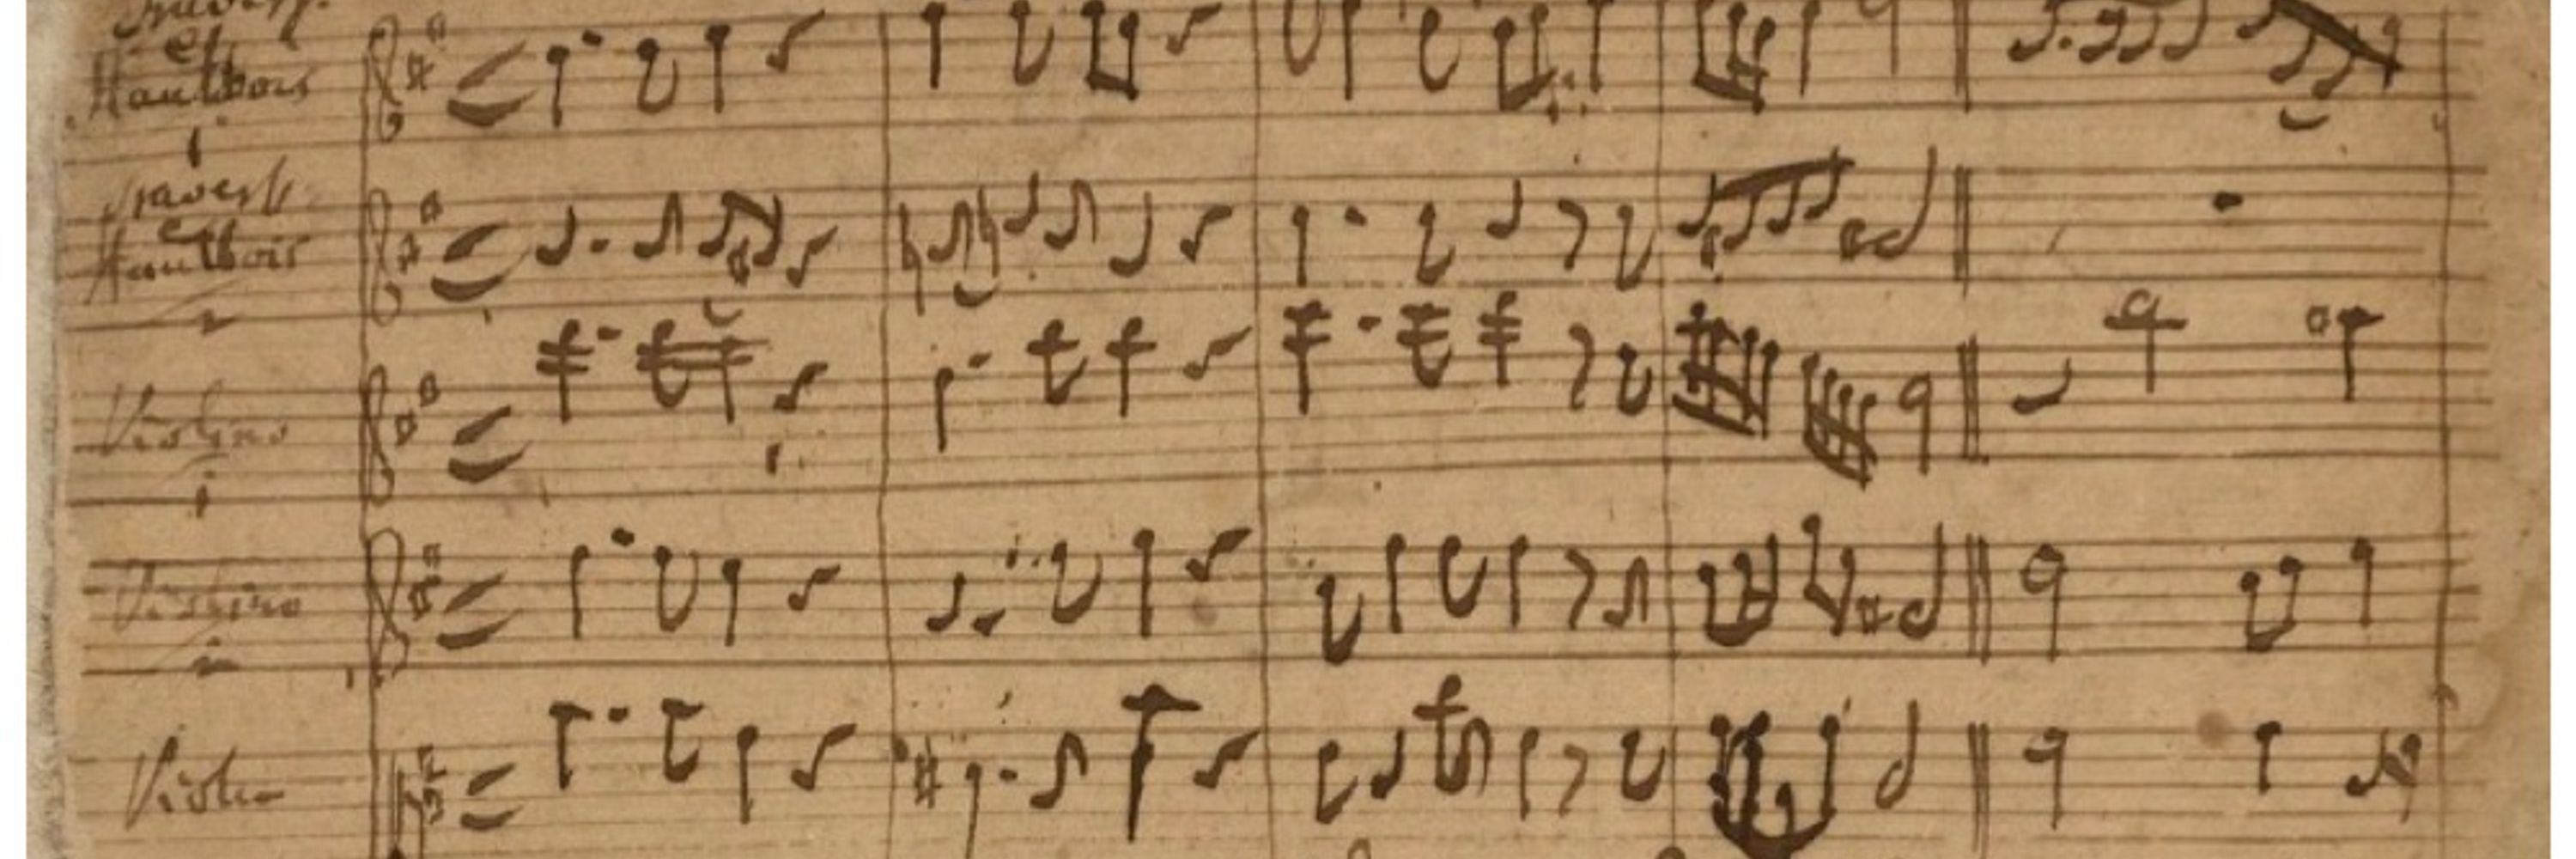 Travers.
et
Hautbois
1
Travers.
Hautbois
2
Violino
1
Violino
2
Viola